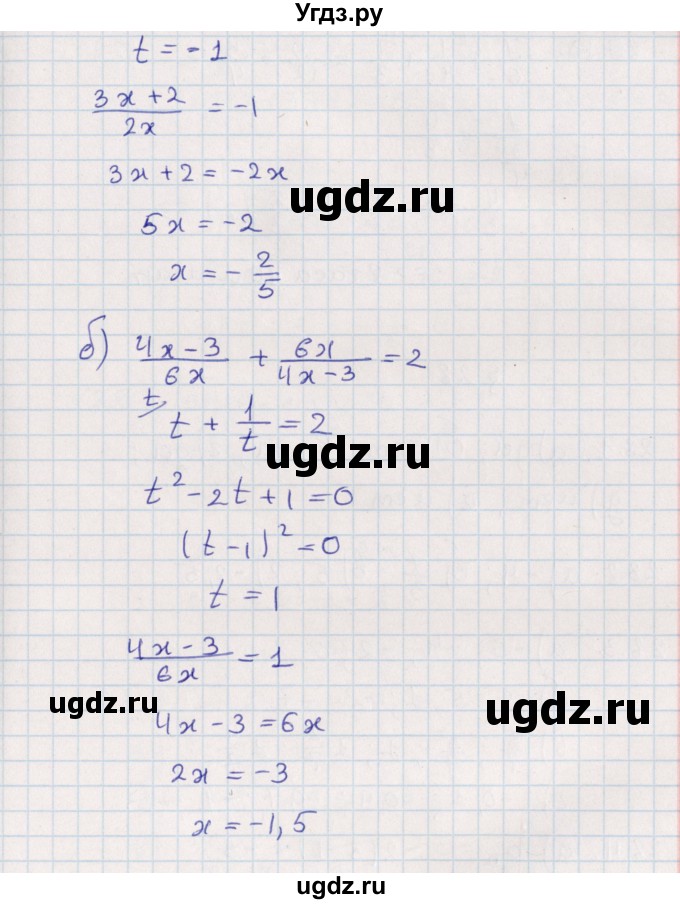 Угдз.ру
t = -1
(3x + 2)/(2x) = -1
3x + 2 = -2x
ugdz.ru
5x = -2
x = -2/5
б) (4x - 3)/(6x) + (6x)/(4x - 3) = 2
t
t + 1/t = 2
ugdz.ru
t² - 2t + 1 = 0
(t - 1)² = 0
t = 1
(4x - 3)/(6x) = 1
ugdz.ru
ugdz.ru
4x - 3 = 6x
2x = -3
x = -1,5
ugdz.ru